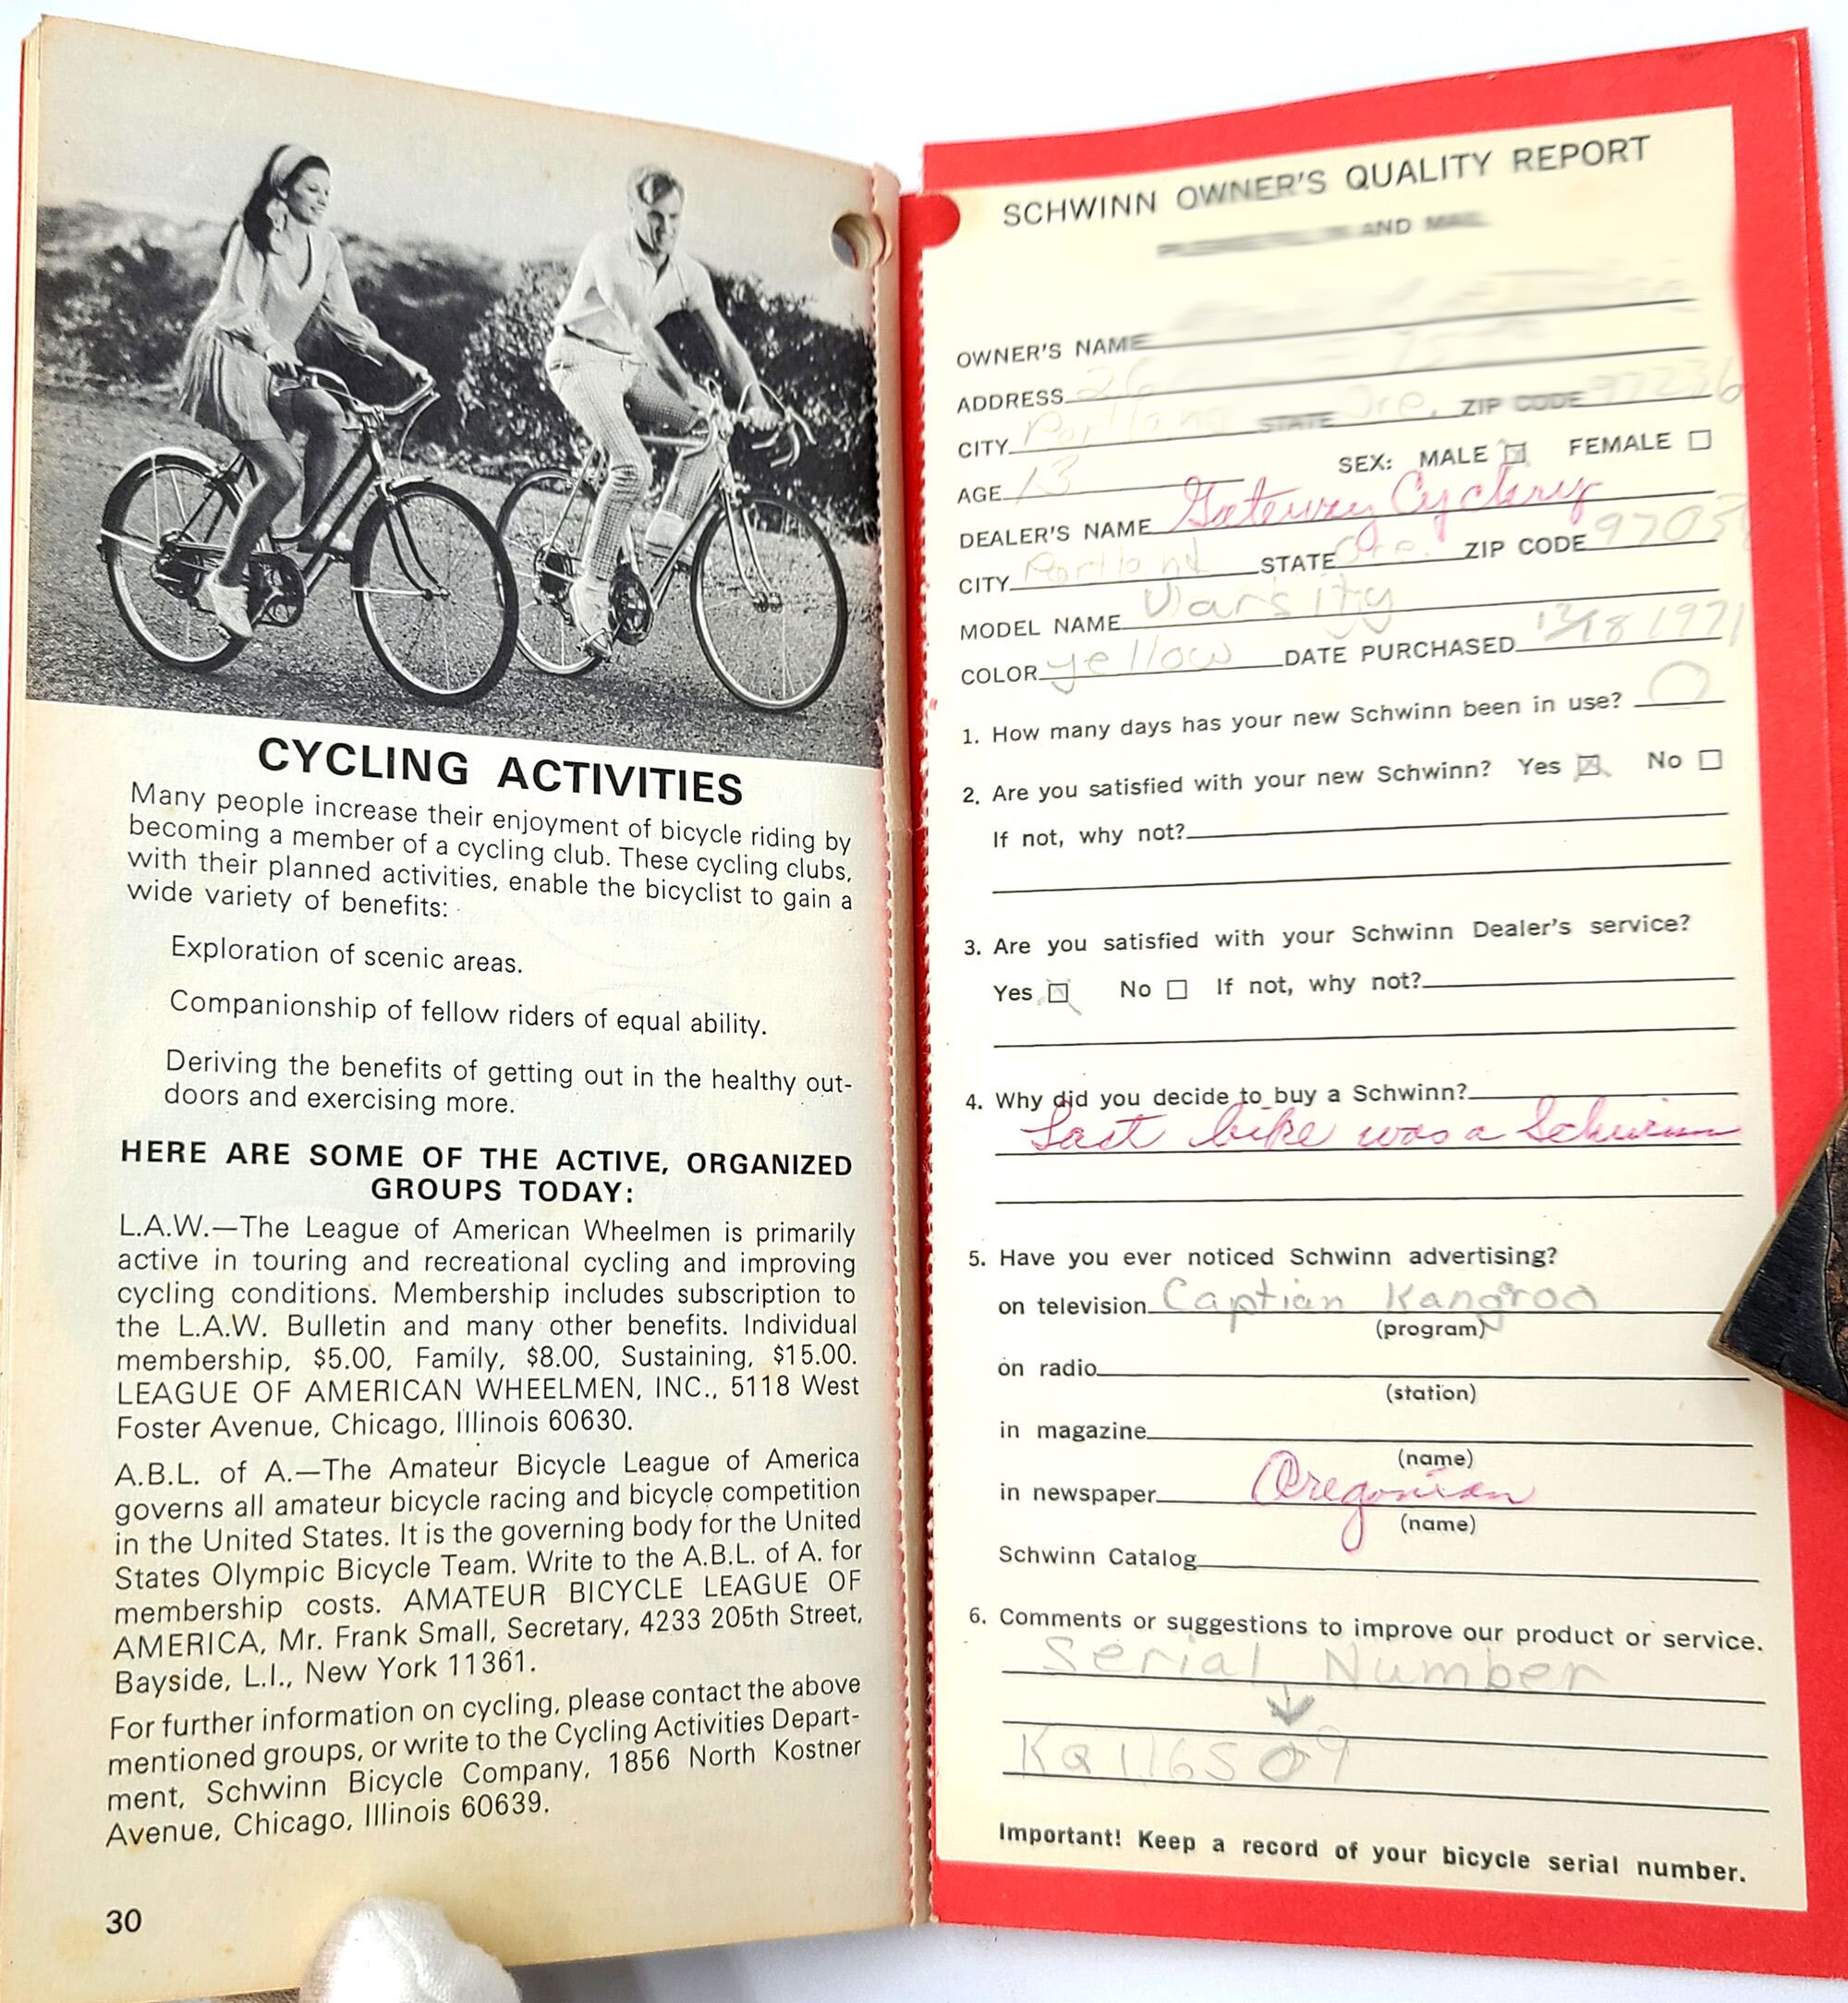 CYCLING ACTIVITIES
Many people increase their enjoyment of bicycle riding by
becoming a member of a cycling club. These cycling clubs,
with their planned activities, enable the bicyclist to gain a
wide variety of benefits:
Exploration of scenic areas.
Companionship of fellow riders of equal ability.
Deriving the benefits of getting out in the healthy out-
doors and exercising more.
HERE ARE SOME OF THE ACTIVE, ORGANIZED
GROUPS TODAY:
L.A.W.—The League of American Wheelmen is primarily
active in touring and recreational cycling and improving
cycling conditions. Membership includes subscription to
the L.A.W. Bulletin and many other benefits. Individual
membership, $5.00, Family, $8.00, Sustaining, $15.00.
LEAGUE OF AMERICAN WHEELMEN, INC., 5118 West
Foster Avenue, Chicago, Illinois 60630.
A.B.L. of A.—The Amateur Bicycle League of America
governs all amateur bicycle racing and bicycle competition
in the United States. It is the governing body for the United
States Olympic Bicycle Team. Write to the A.B.L. of A. for
membership costs. AMATEUR BICYCLE LEAGUE OF
AMERICA, Mr. Frank Small, Secretary, 4233 205th Street,
Bayside, L.I., New York 11361.
For further information on cycling, please contact the above
mentioned groups, or write to the Cycling Activities Depart-
ment, Schwinn Bicycle Company, 1856 North Kostner
Avenue, Chicago, Illinois 60639.
30
SCHWINN OWNER'S QUALITY REPORT
AND MAIL
OWNER'S NAME
ADDRESS 26
CITY Portland STATE Ore. ZIP CODE 97236
AGE 13 SEX: MALE FEMALE
DEALER'S NAME Gateway Cyclery
CITY Portland STATE Ore. ZIP CODE
MODEL NAME Varsity
COLOR yellow DATE PURCHASED 12/18 1971
1. How many days has your new Schwinn been in use? 0
2. Are you satisfied with your new Schwinn? Yes No
If not, why not?
3. Are you satisfied with your Schwinn Dealer's service?
Yes No If not, why not?
4. Why did you decide to buy a Schwinn?
Last bike was a Schwinn
5. Have you ever noticed Schwinn advertising?
on television Captian Kangroo
(program)
on radio
(station)
in magazine
(name)
in newspaper Oregonian
(name)
Schwinn Catalog
6. Comments or suggestions to improve our product or service.
Serial Number
↓
KQ116509
Important! Keep a record of your bicycle serial number.